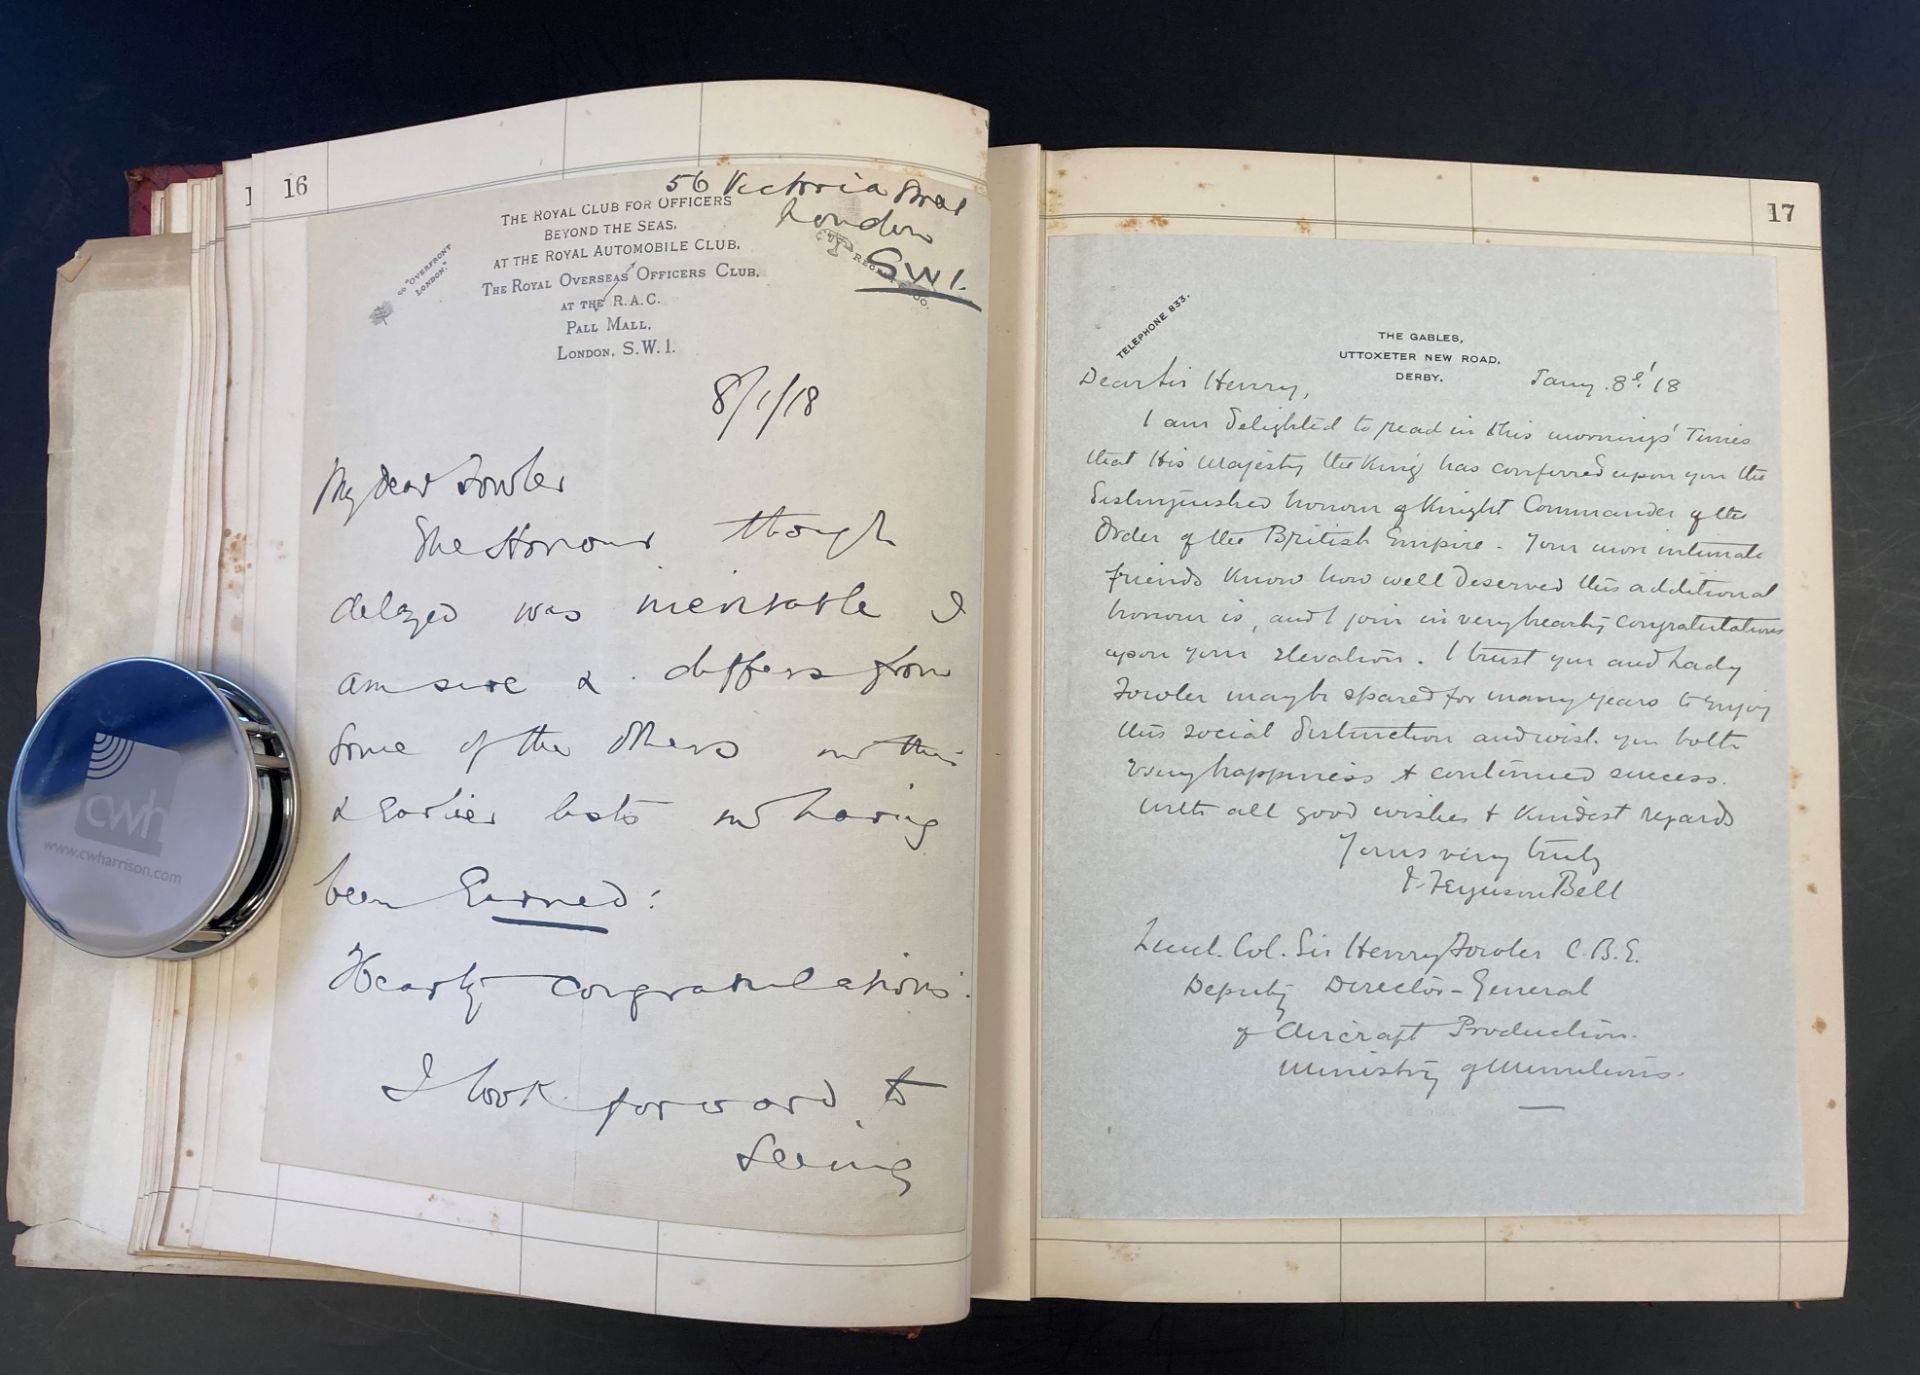 16
56 Victoria Street
London
S W 1.
THE ROYAL CLUB FOR OFFICERS
BEYOND THE SEAS,
AT THE ROYAL AUTOMOBILE CLUB,
THE ROYAL OVERSEAS OFFICERS CLUB,
AT THE R.A.C.
PALL MALL,
LONDON, S.W.1.
"OVERFRONT
LONDON."
8/1/18
My Dear Fowler
The Honour though
delayed was inevitable I
am sure & differs from
some of the others in this
& Earlier lists in having
been Earned:
Hearty congratulations.
I look forward to
seeing
cwh
www.cwharrison.com
17
TELEPHONE 833.
THE GABLES,
UTTOXETER NEW ROAD,
DERBY.
Dear Sir Henry,
Jany. 8th '18
I am delighted to read in this mornings' Times
that His Majesty the King has conferred upon you the
distinguished honour of Knight Commander of the
Order of the British Empire. Your more intimate
friends know how well deserved this additional
honour is, and I join in very hearty congratulations
upon your elevation. I trust you and Lady
Fowler may be spared for many years to enjoy
this social distinction and wish you both
Every happiness & continued success.
With all good wishes & kindest regards
Yours very truly
Ferguson Bell
Lieut. Col. Sir Henry Fowler C.B.E.
Deputy Director-General
of Aircraft Production.
Ministry of Munitions.